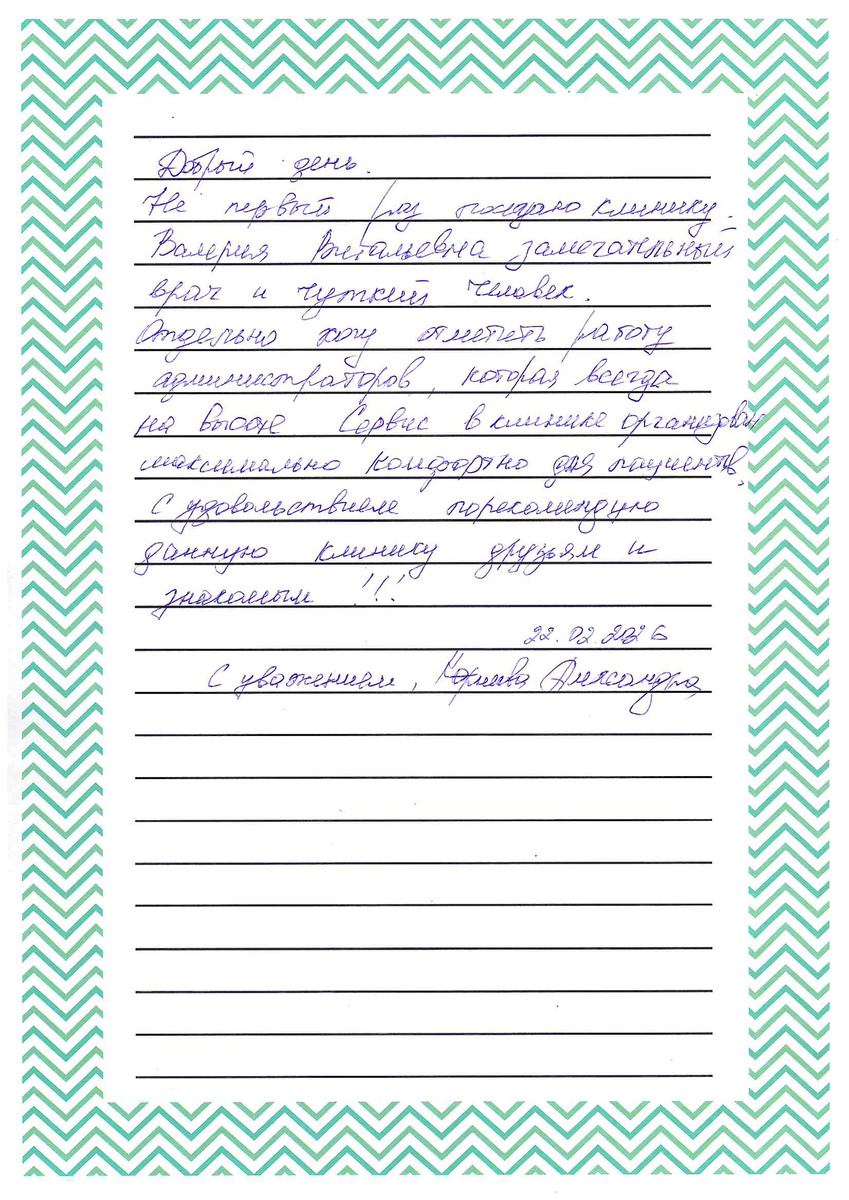 Добрый день.
Не первый раз посещаю клинику.
Валерия Витальевна замечательный
врач и чуткий человек.
Отдельно хочу отметить работу
администраторов, которая всегда
на высоте Сервис в клинике организован
максимально комфортно для пациентов.
С удовольствием порекомендую
данную клинику друзьям и
знакомым !!!
22.02.2026
С уважением, Александра